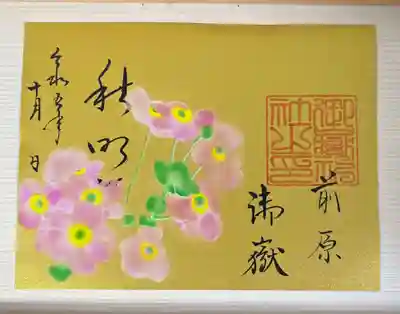 御嶽神
社之印
前原
御嶽
秋明
令和五年
十月 日